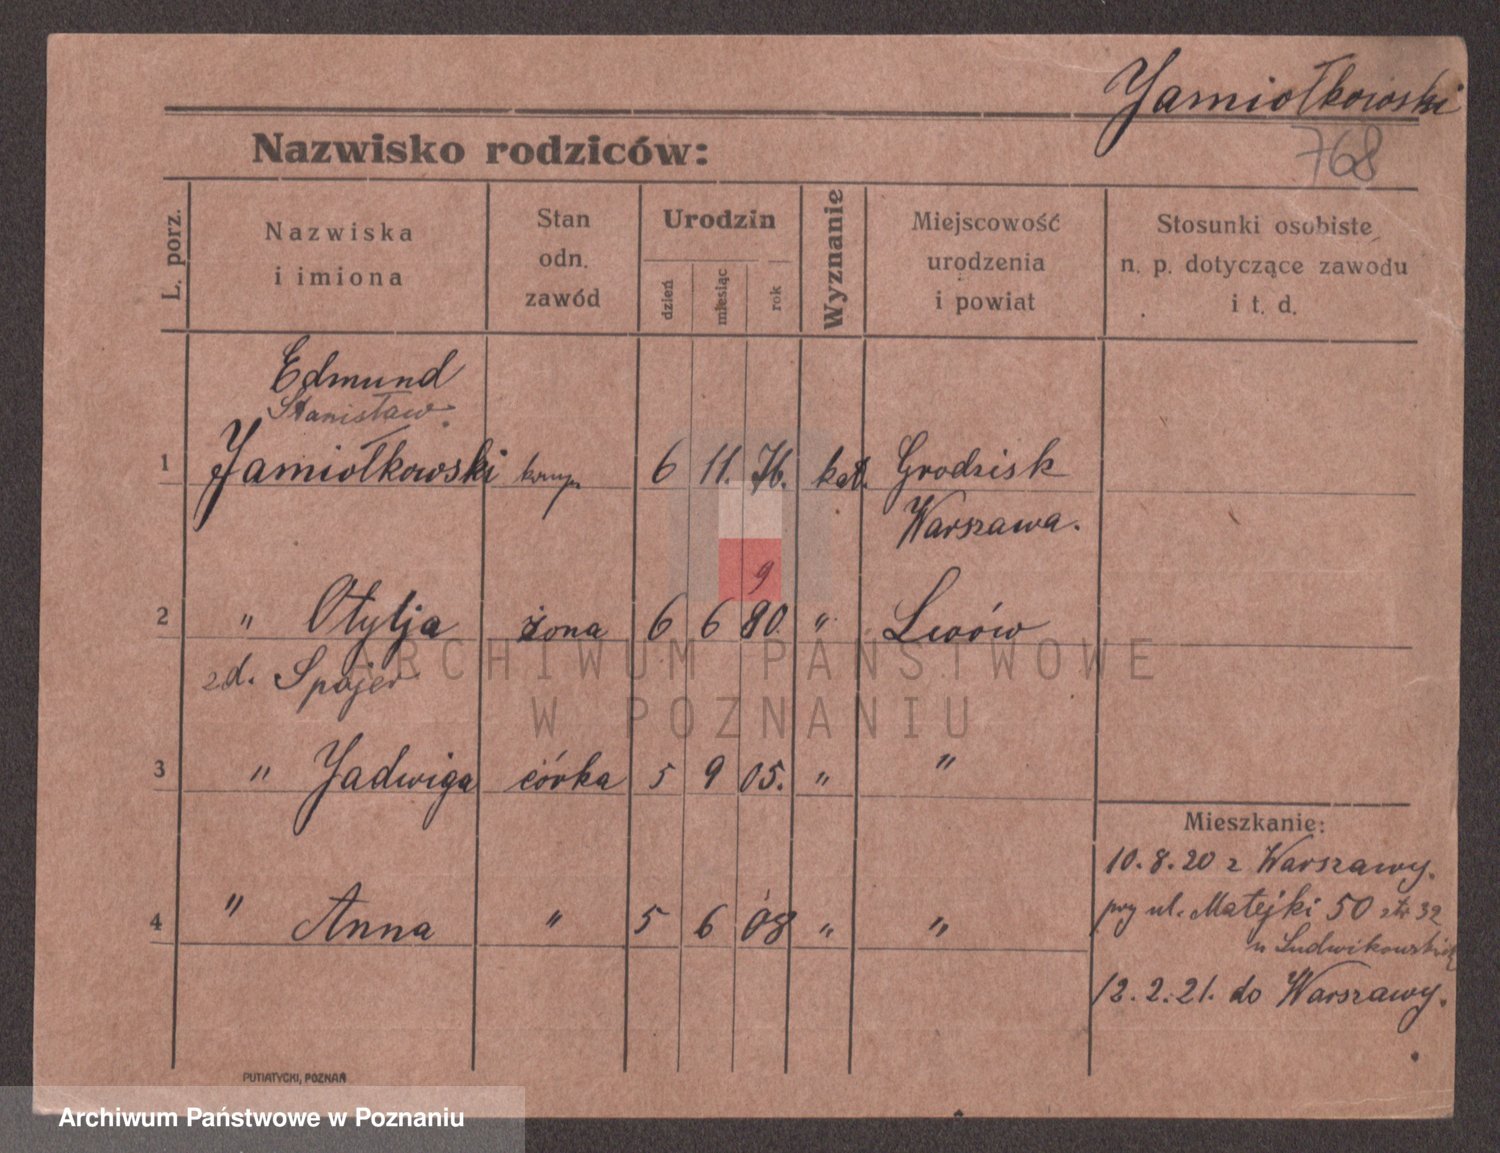 Jamiołkowski
768
Nazwisko rodziców:
L. porz.
Nazwiska
i imiona
Stan
odn.
zawód
Urodzin
dzień
miesiąc
rok
Wyznanie
Miejscowość
urodzenia
i powiat
Stosunki osobiste
n. p. dotyczące zawodu
i t. d.
Edmund
Stanisław
1 Jamiołkowski 6 11. 76. kat. Grodzisk
Warszawa.
9
2 " Otylja żona 6 6 80. " Lwów
zd. Spajer
3 " Jadwiga córka 5 9 05. " "
4 " Anna " 5 6 08 " "
Mieszkanie:
10.8.20 z Warszawy.
przy ul. Matejki 50
u Ludwikowskich
12.2.21. do Warszawy.
PUTIATYCKI, POZNAŃ
ARCHIWUM PAŃSTWOWE
W POZNANIU
Archiwum Państwowe w Poznaniu